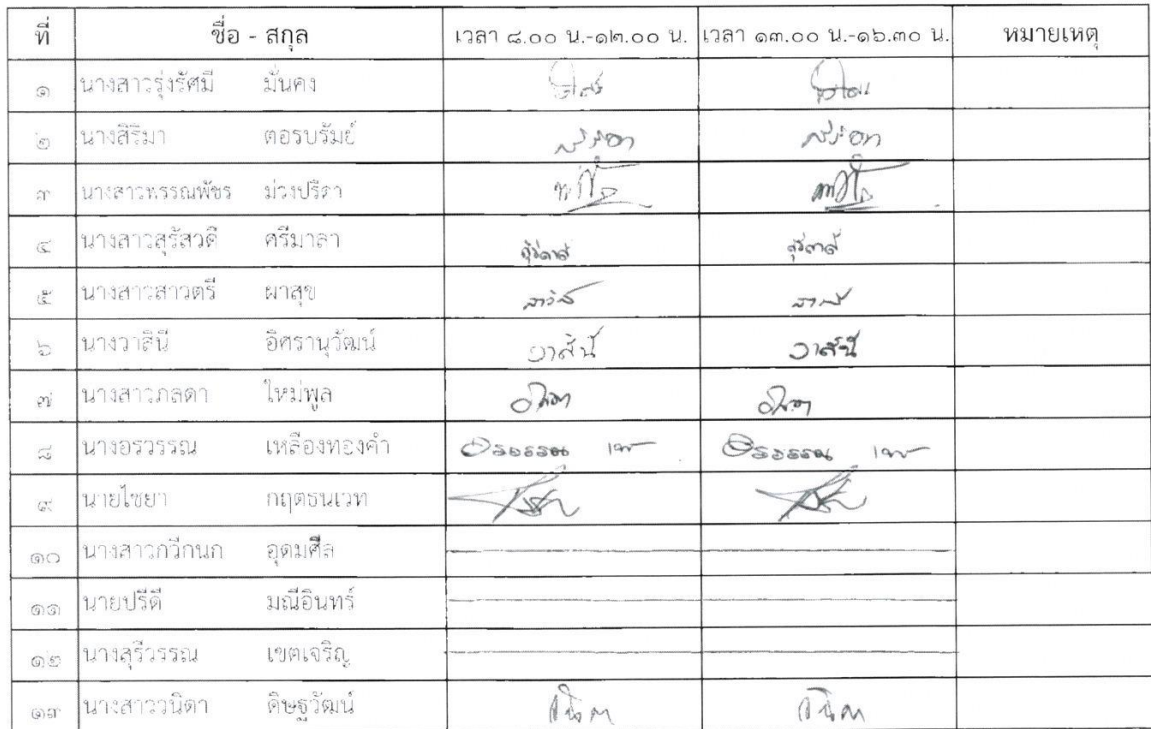 ที่ ชื่อ - สกุล เวลา ๘.๐๐ น.-๑๒.๐๐ น. เวลา ๑๓.๐๐ น.-๑๖.๓๐ น. หมายเหตุ
๑ นางสาวรุ่งรัศมี มั่นคง
๒ นางสิริมา ตอรบรัมย์
๓ นางสาวพรรณพัชร ม่วงปรีดา
๔ นางสาวสุรัสวดี ศรีมาลา สุรัสวดี สุรัสวดี
๕ นางสาวสาวตรี ผาสุข
๖ นางวาสินี อิศรานุวัฒน์ วาสินี วาสินี
๗ นางสาวภลดา ใหม่พูล
๘ นางอรวรรณ เหลืองทองคำ อรวรรณ อรวรรณ
๙ นายไชยา กฤตธนเวท
๑๐ นางสาวกวีกนก อุดมศีล
๑๑ นายปรีดี มณีอินทร์
๑๒ นางสุรีวรรณ เขตเจริญ
๑๓ นางสาววนิดา ดิษฐวัฒน์ วนิดา วนิดา